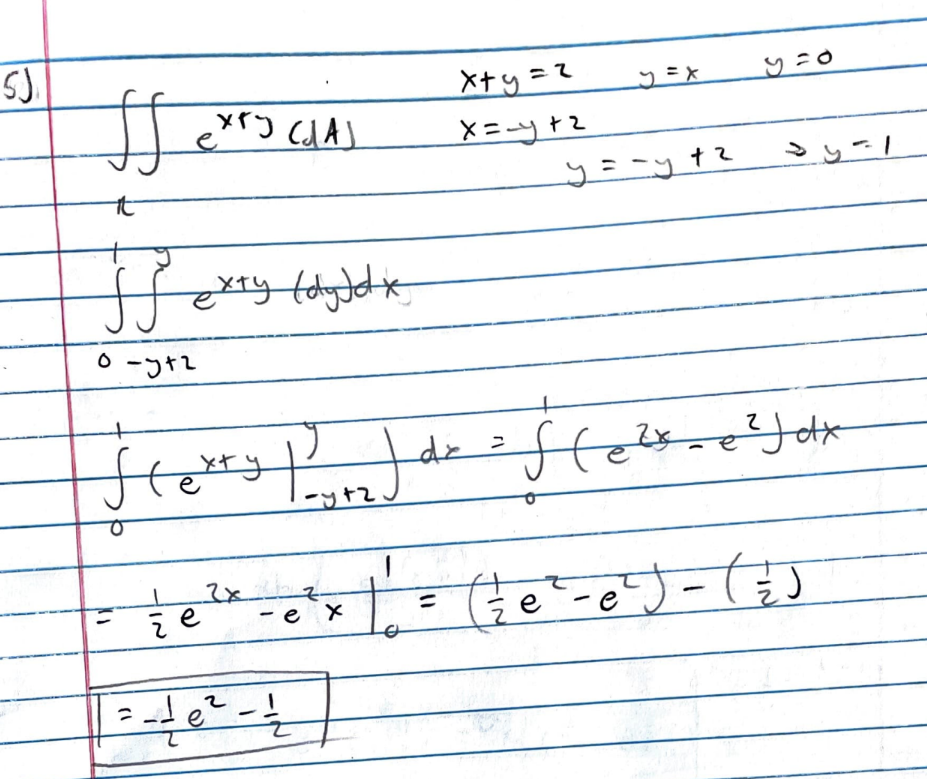 5). x+y=2 y=x y=0
∬ e^{x+y} (dA) x=-y+2
R y=-y+2 ⇒ y=1
∫_0^1 ∫_{-y+2}^y e^{x+y} (dy)dx
∫_0^1 (e^{x+y} |_{-y+2}^y) dx = ∫_0^1 (e^{2x} - e^2) dx
= 1/2 e^{2x} - e^2 x |_0^1 = (1/2 e^2 - e^2) - (1/2)
= -1/2 e^2 - 1/2